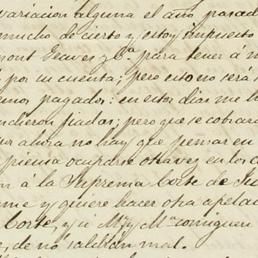 variacion alguna el año pasado
mucho de cierto y estoy impuesto
mont Graves y Cª. para tener á m
por su cuenta; pero esto no será
emos pagado: en estos dias me h
ndieron fiadas; pero que se cobrara
ahora no hay que pensar en
piensa ocuparse otra vez en los d
n á la Suprema Corte de Ju
me y quiere hacer otra apela
Corte, y si M y Mª. consiguen
de no saldrán mal.